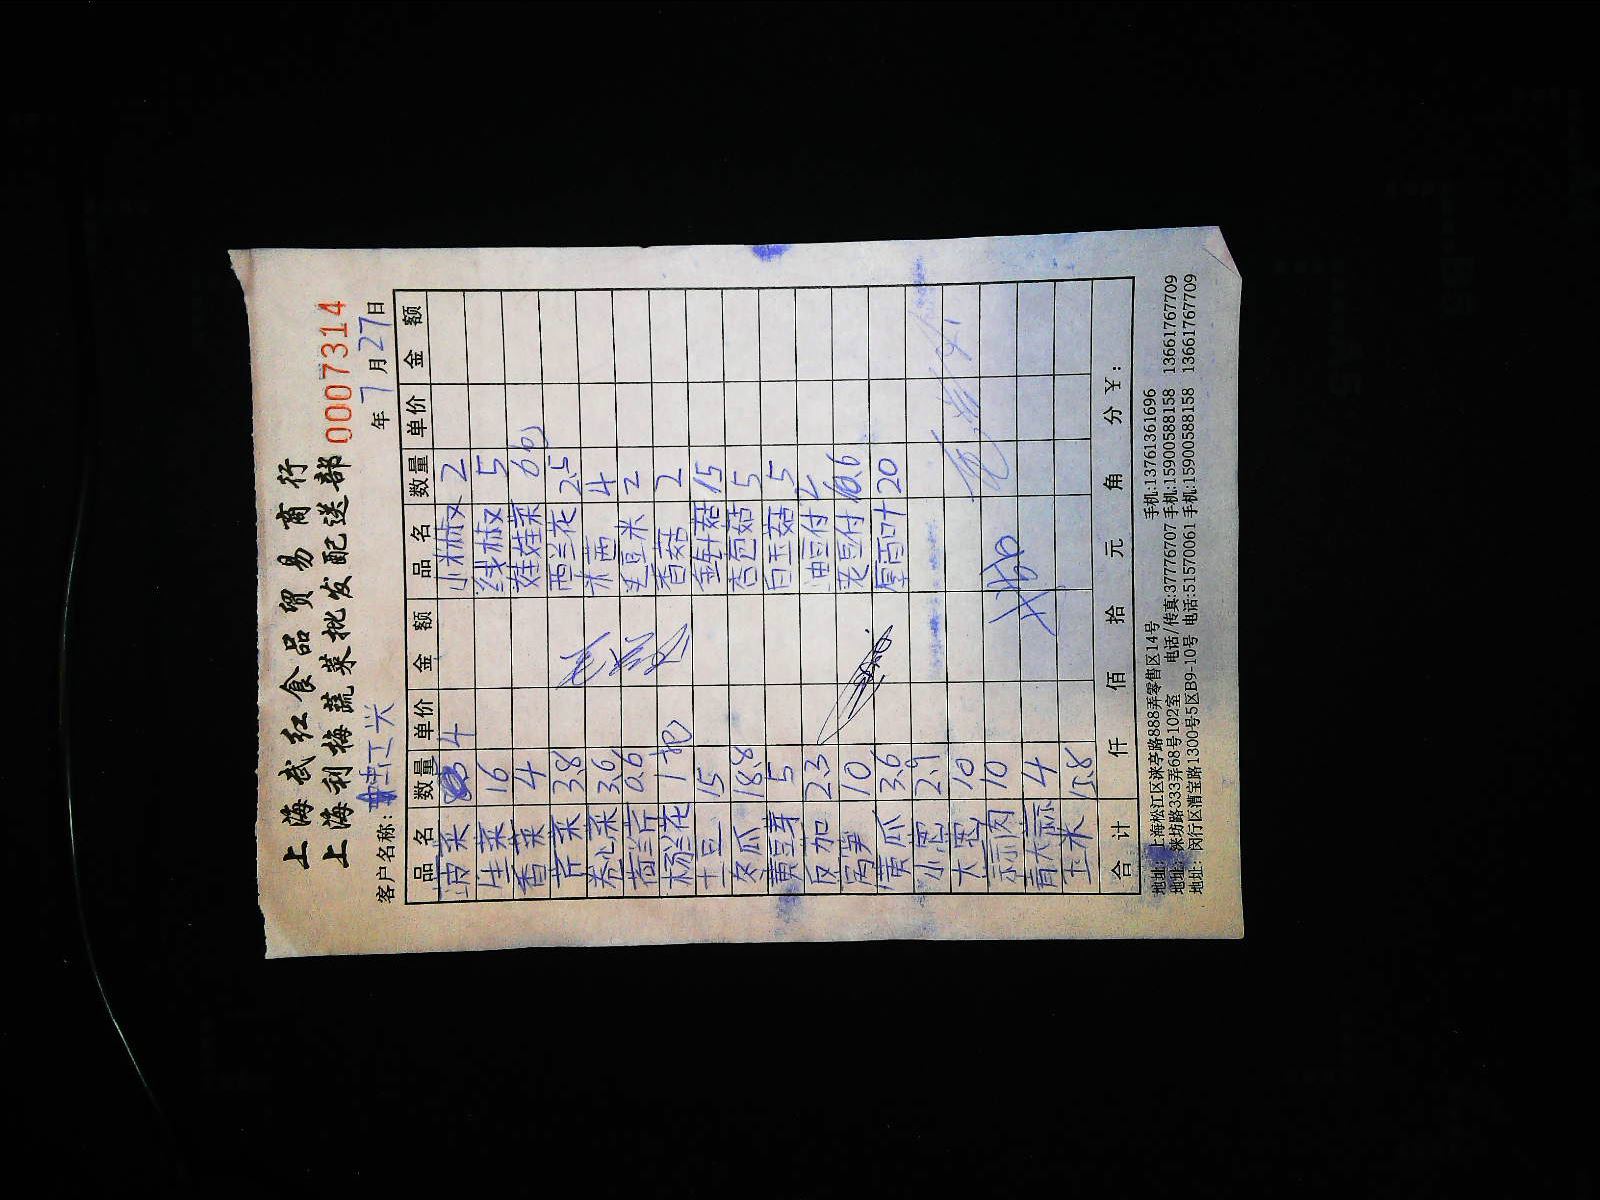 上海武红食品贸易商行
上海利梅蔬菜批发配送部
0007314
客户名称: 江兴
年 7 月 27 日
品名 数量 单价 金额 品名 数量 单价 金额
菠菜 4 小米椒 2
生菜 16 线椒 5
香菜 4 娃娃菜 6包
芹菜 3.8 西兰花 2.5
卷心菜 3.6 米西 4
荷兰芹 0.6 豆米 2
杨兰花 1把 香菇 2
土豆 15 金针菇 15
冬瓜 18.8 杏包菇 5
黄豆芽 5 白玉菇 5
反加 2.3 油豆付
窝笋 10 老豆付
黄瓜 3.6 厚百叶 20
小葱 2.9
大葱 10
10
青大 4
玉米 13.8
合计 仟 佰 拾 元 角 分 ¥:
地址: 上海松江区涞亭路888弄零售区14号 手机:13761361696
地址: 涞坊路333弄68号102室 电话/传真:37776707 手机:15900588158 13661767709
地址: 闵行区漕宝路1300号5区B9-10号 电话:51570061 手机:15900588158 13661767709